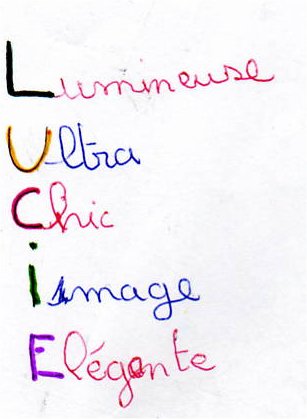 Lumineuse
Ultra
Chic
image
Elégante